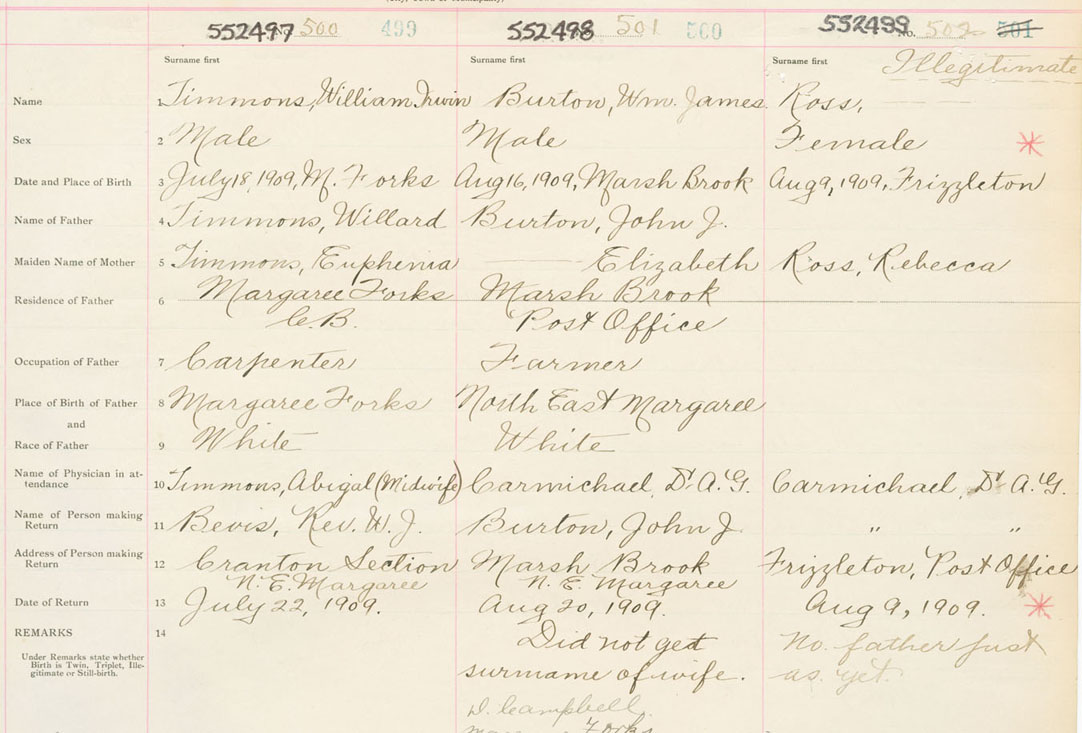 552497 No. 500 499 552498 501 500 552499 No. 502 501
Surname first Surname first Surname first Illegitimate
Name 1 Timmons, William Irwin Burton, Wm. James Ross,
Sex 2 Male Male Female *
Date and Place of Birth 3 July 18, 1909, M. Forks Aug 16, 1909, Marsh Brook Aug 9, 1909, Frizzleton
Name of Father 4 Timmons, Willard Burton, John J.
Maiden Name of Mother 5 Timmons, Euphenia Elizabeth Ross, Rebecca
Residence of Father 6 Margaree Forks Marsh Brook
C.B. Post Office
Occupation of Father 7 Carpenter Farmer
Place of Birth of Father 8 Margaree Forks North East Margaree
and
Race of Father 9 White White
Name of Physician in at-
tendance 10 Timmons, Abigal (Midwife) Carmichael, Dr A. G. Carmichael, Dr A. G.
Name of Person making
Return 11 Bevis, Rev. W. J. Burton, John J. " "
Address of Person making
Return 12 Cranton Section Marsh Brook Frizzleton, Post Office
N. E. Margaree N. E. Margaree
Date of Return 13 July 22, 1909. Aug 20, 1909. Aug 9, 1909. *
REMARKS 14 Did not get No father just
Under Remarks state whether
Birth is Twin, Triplet, Ille-
gitimate or Still-birth.
surname of wife. as yet.
D. Campbell
Forks